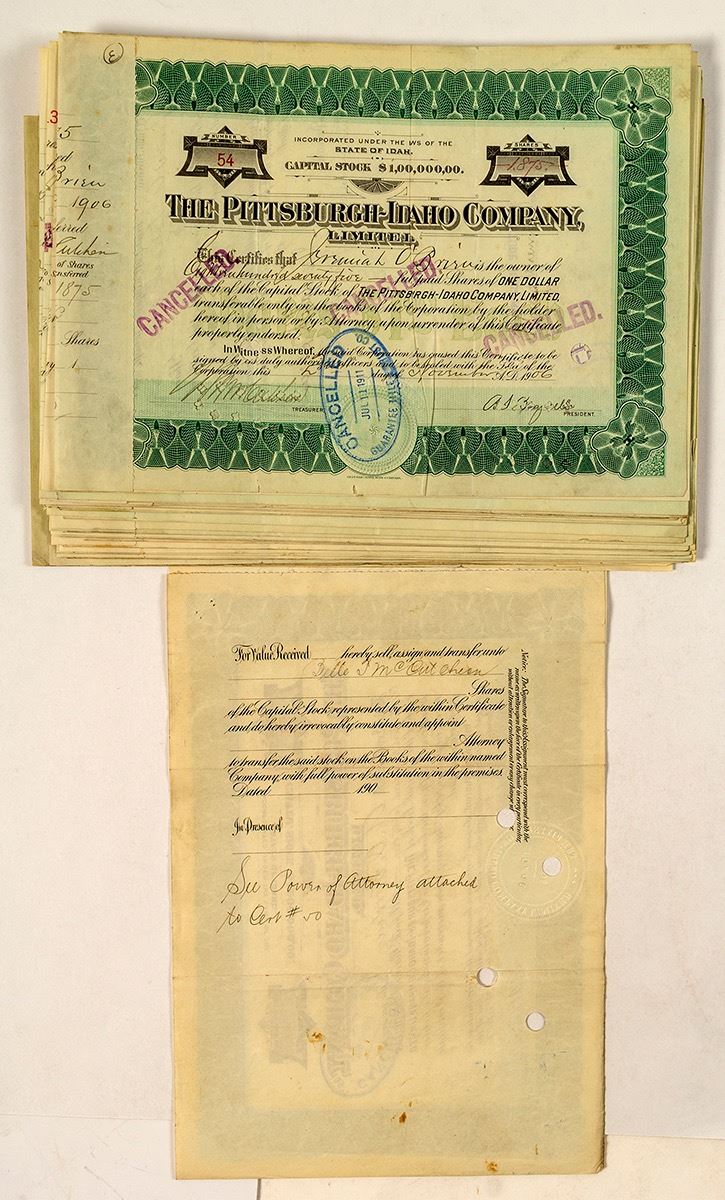 3
3
5
Brien
1906
of Shares
1875
Shares
NUMBER
54
INCORPORATED UNDER THE WS OF THE
STATE OF IDAH.
CAPITAL STOCK $1,00,000,00.
SHARES
1875
THE PITTSBURGH-IDAHO COMPANY,
LIMITED.
This Certifies that Jeremiah O'Brien is the owner of
hundred seventy five full paid Shares of ONE DOLLAR
each of the Capital Stock of THE PITTSBRGH-IDAHO COMPANY, LIMITED,
transferable only on the books of the Corporation by the holder
hereof in person or by Attorney, upon surrender of this Certificate
properly endorsed.
In Witness Whereof, the said Corporation has caused this Certificate to be
signed by its duly authorized officers and to be sealed with the Seal of the
Corporation this day of November A.D. 1906
TREASURER
PRESIDENT.
CANCELLED.
CANCELLED.
CANCELLED.
CANCELLED
JUL 11 1911
GUARANTEE TITLE & TRUST CO
For Value Received hereby sell, assign and transfer unto
Belle J McCutcheon
Shares
of the Capital Stock represented by the within Certificate
and do hereby irrevocably constitute and appoint
Attorney
to transfer the said stock on the Books of the within named
Company, with full power of substitution in the premises.
Dated 190
In Presence of
Notice: The Signature to this Assignment must correspond with the
name as written upon the face of the Certificate in every particular,
without alteration or enlargement or any change
See Power of Attorney attached
to Cert # 50